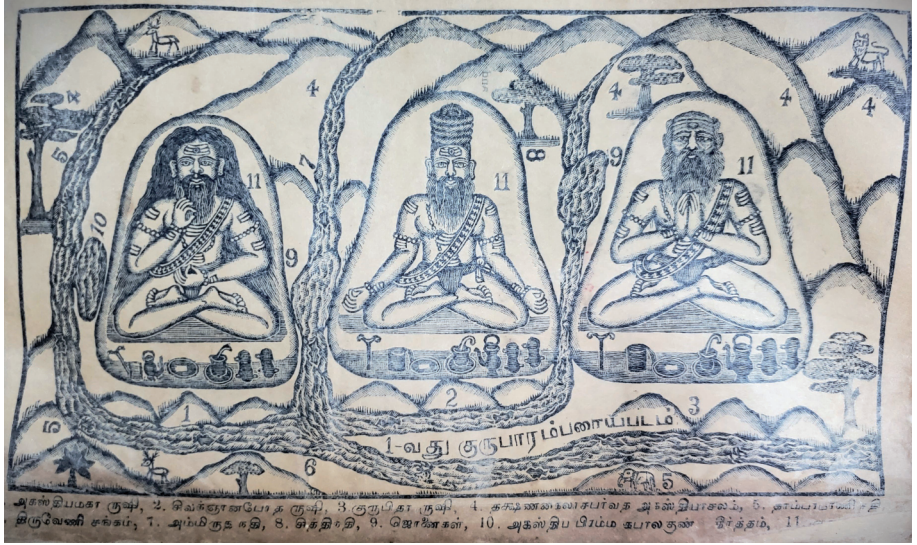 4
4
4
4
4
5
7
8
9
11
11
11
10
9
1
2
3
5
1-வது குருபாரம்பனாய்படம்
6
5
அகஸ்தியமகா ருஷி, 2. சிவகஞானபோத ருஷி, 3 குருபிதா ருஷி, 4. தக்ஷணகைலாசபர்வத அகஸ்தியாசலம், 5.
திருவேணி சங்கம், 7. அம்மிருத நதி, 8. சித்திரநதி, 9. ஜொனைகள், 10. அகஸ்திய பிரம்ம கபாலகுண் தீர்த்தம், 11